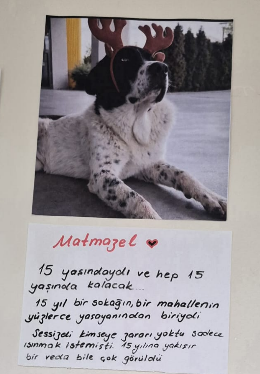 Matmazel
15 yaşındaydı ve hep 15
yaşında kalacak...
15 yıl bir sokağın, bir mahallenin
yüzlerce yaşayanından biriydi
Sessizdi kimseye zararı yoktu sadece
ısınmak istemişti. 15 yılına yakışır
bir veda bile çok görüldü